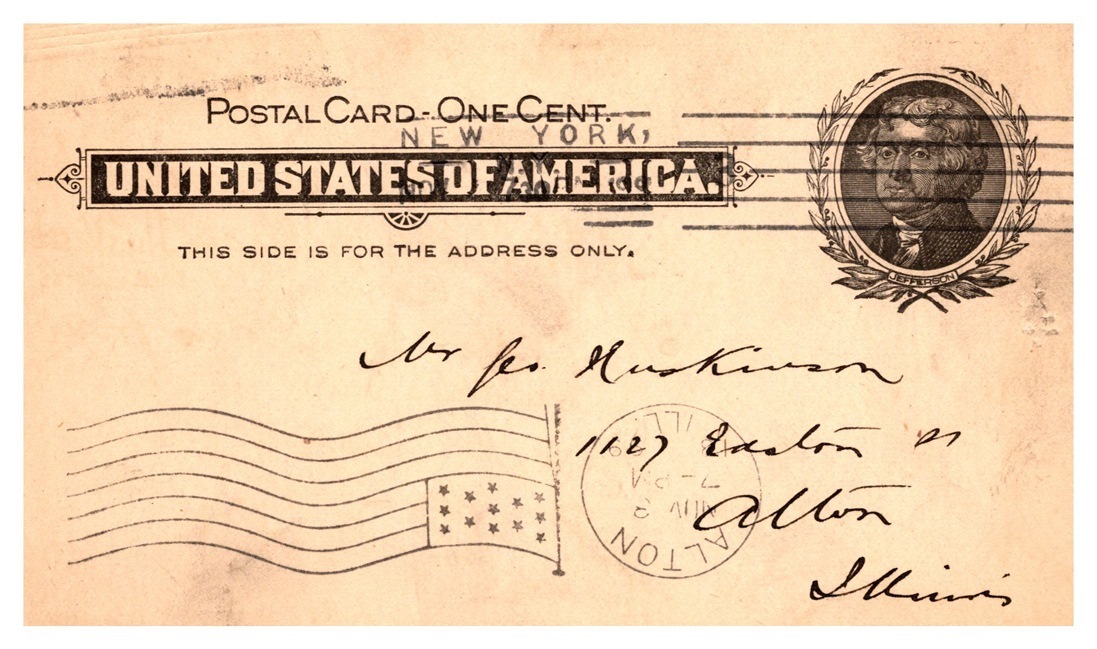 POSTAL CARD - ONE CENT.
NEW YORK,
N.Y.
UNITED STATES OF AMERICA.
THIS SIDE IS FOR THE ADDRESS ONLY.
JEFFERSON
Mr Geo. Huskinson
1127 Easton st
Alton
Illinois
ALTON
7-PM
ILL